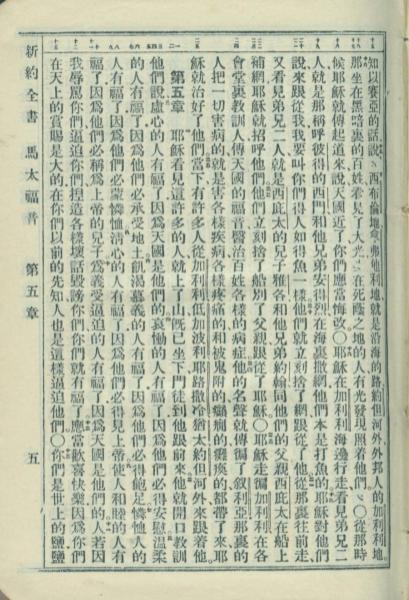 知以賽亞的話說、西布倫地、弗他利地就是沿海的路約但河外外邦人的加利利地
那坐在黑暗裏的百姓看見了大光、在死蔭之地的人有光發現照着他們、○從那時
候耶穌就傳起道來說天國近了你們應當悔改○耶穌在加利利海邊行走看見弟兄二
人就是那稱呼彼得的西門和他兄弟安得烈在海裏撒網他們本是打魚的耶穌對他們
說來跟從我我要叫你們得人如得魚一樣他們就立刻捨了網跟從了他從那裏往前走
又看見弟兄二人就是西庇太的兒子雅各和他兄弟約翰同他們的父親西庇太在船上
補網耶穌就招呼他們他們立刻捨了船別了父親跟從了耶穌○耶穌走徧加利利在各
會堂裏教訓人傳天國的福音醫治百姓各樣的病症他的名聲就傳徧了叙利亞那裏的
人把一切害病的就是害各樣疾病各樣疼痛的和被鬼附的癲癇的癱瘓的都帶了來耶
穌就治好了他們當下有許多人從加利利低加波利耶路撒冷猶太約但河外來跟着他。
第五章 耶穌看見這許多的人就上了山旣已坐下門徒到他跟前來他就開口教訓
他們說虛心的人有福了因爲天國是他們的哀慟的人有福了因爲他們必得安慰溫柔
的人有福了因爲他們必承受地土飢渴慕義的人有福了因爲他們必得飽足憐恤人的
人有福了因爲他們必蒙憐恤清心的人有福了因爲他們必得見上帝使人和睦的人有
福了因爲他們必稱爲上帝的兒子爲義受逼迫的人有福了因爲天國是他們的人若因
我辱罵你們逼迫你們揑造各樣壞話毀謗你們你們就有福了應當歡喜快樂因爲你們
在天上的賞賜是大的在你們以前的先知人也是這樣逼迫他們○你們是世上的鹽鹽
新約全書 馬太福音 第五章 五